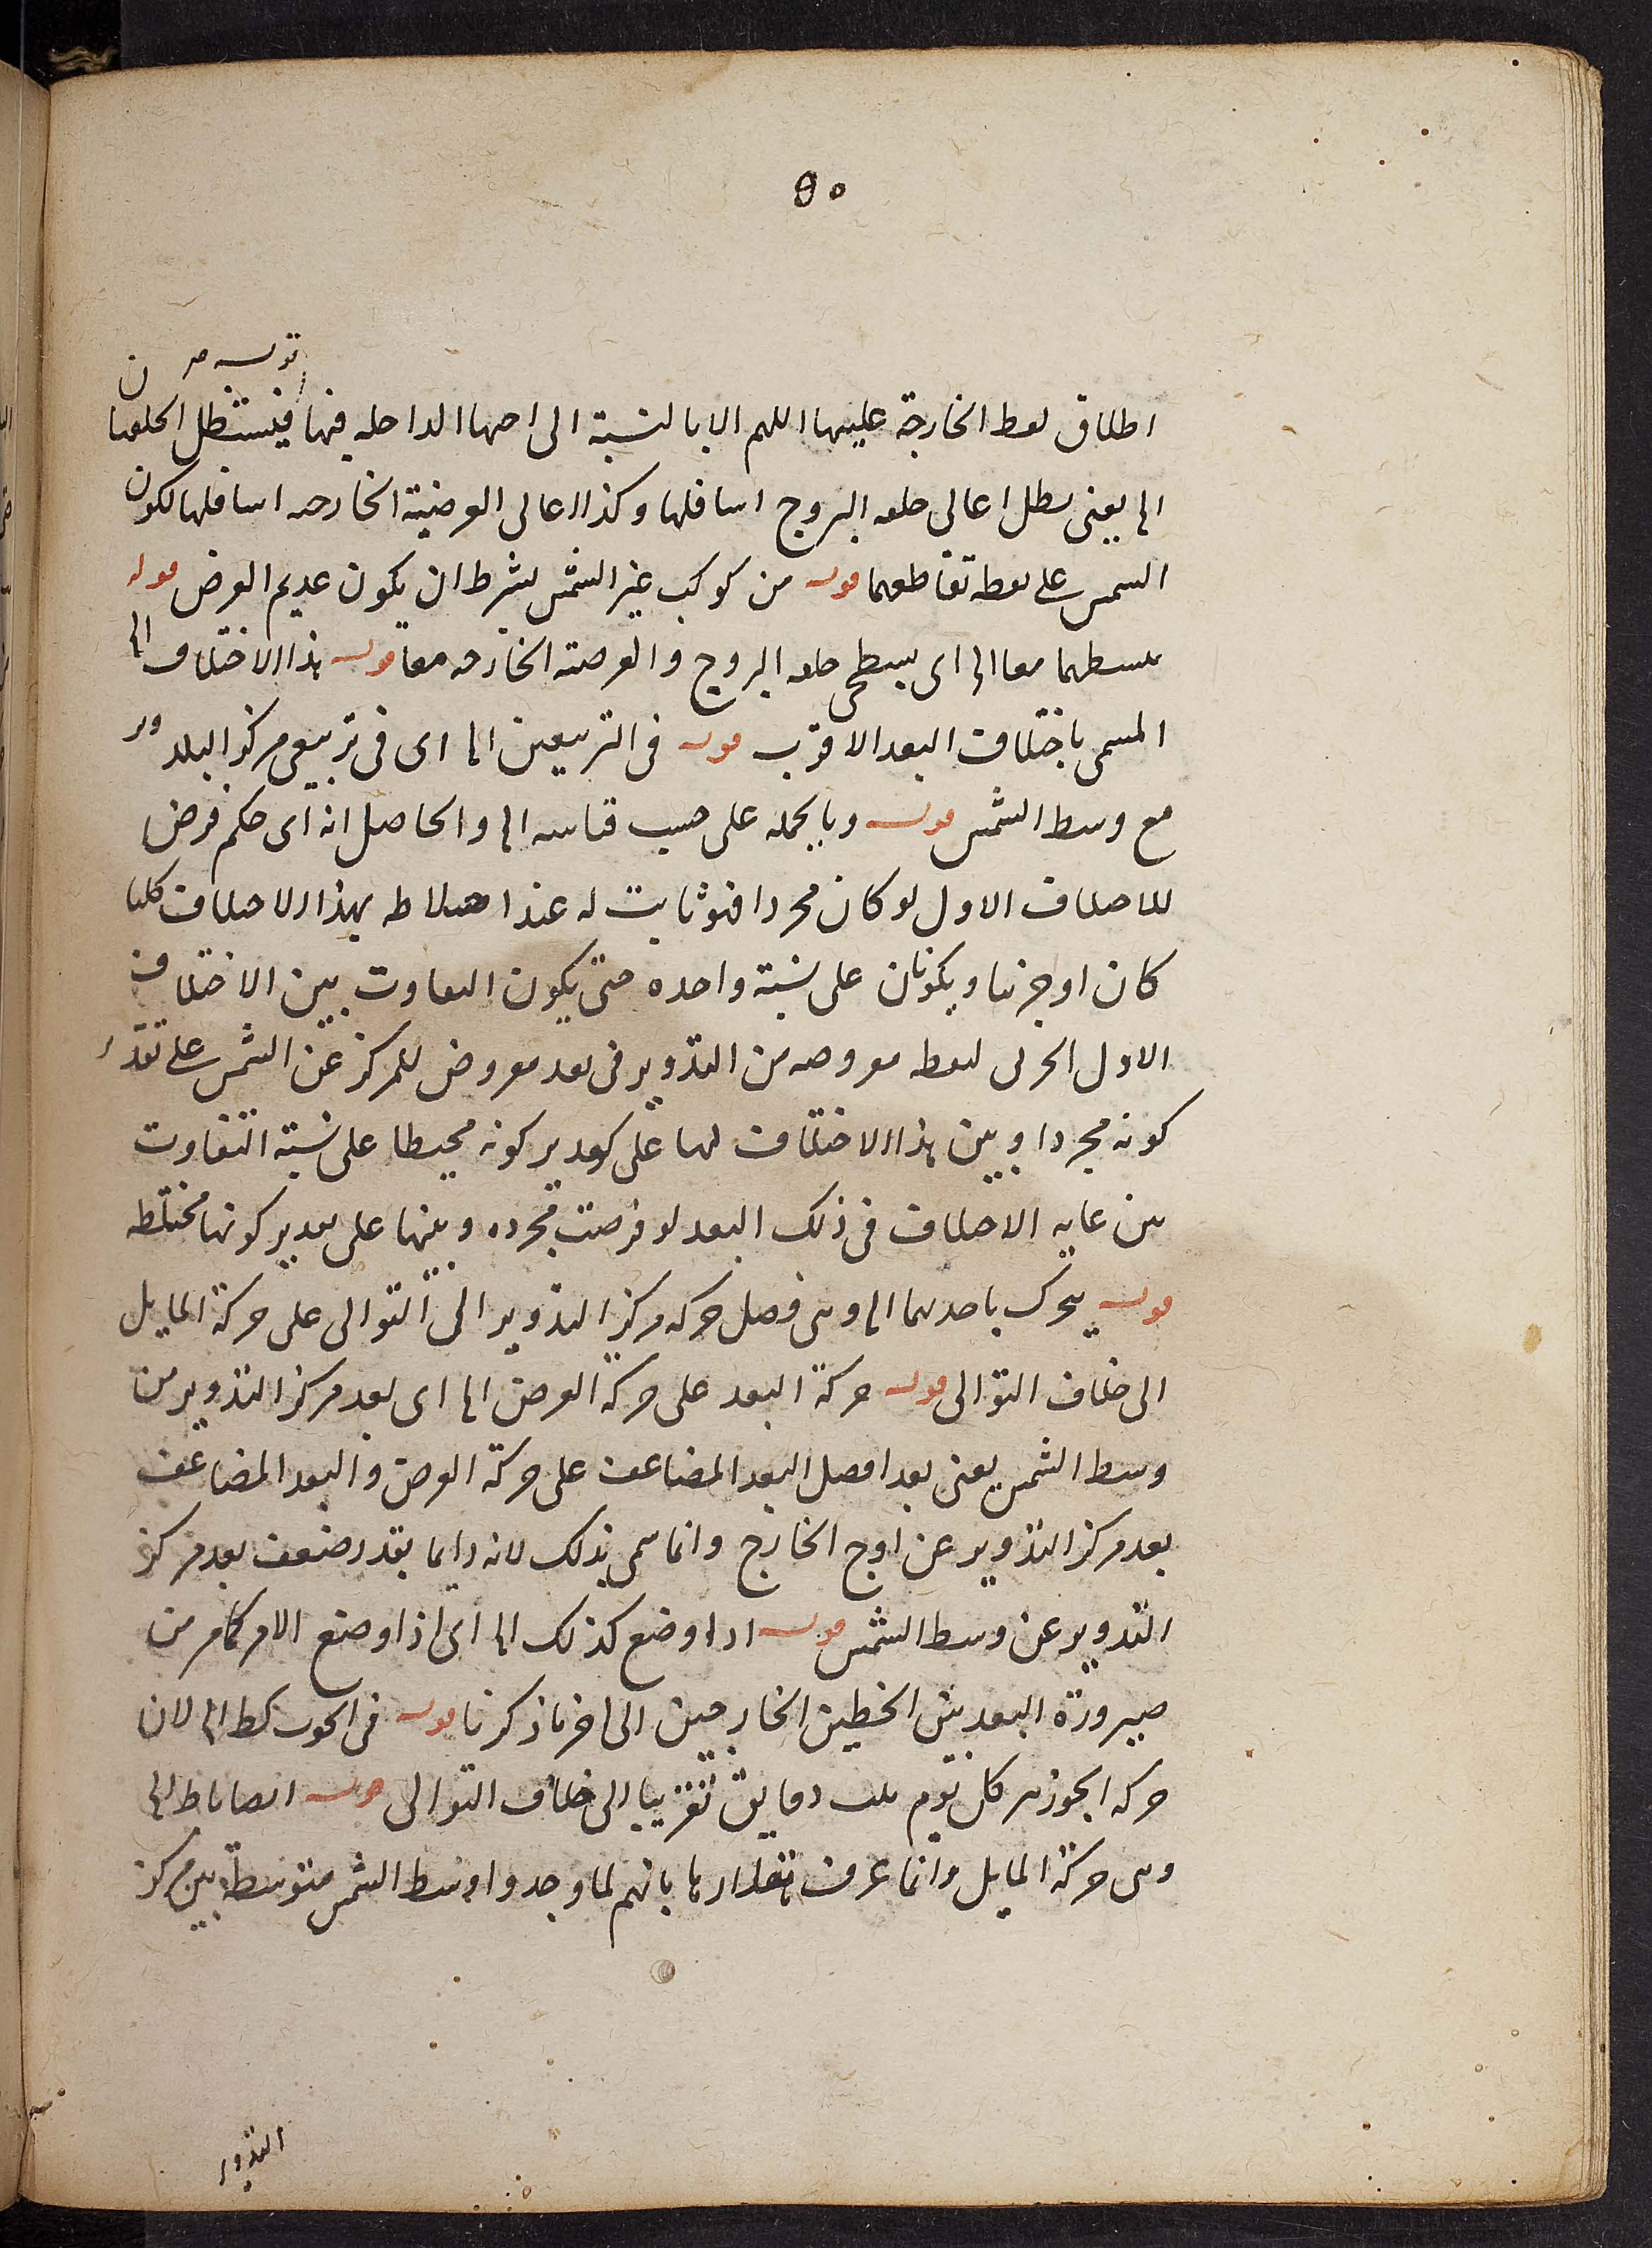 ٥٠
قوله
اطلاق لفظ الخارجة عليها اللهم الا بالنسبة الى اختها الداخله فيها فيستظل الحلقتان
الخ يعنى يظل اعالى حلقه البروج اسافلها وكذا اعالى العرضية الخارجه اسافلها لكون
الشمس على نقطه تقاطعهما قوله من كوكب غير الشمس بشرط ان يكون عديم العرض قوله
بسطحهما معا الخ اى بسطحى حلقه البروج والعرضيه الخارجه معا قوله هذا الاختلاف الخ
المسمى باختلاف البعد الاقرب قوله فى التربيعين الخ اى فى تربيعى مركز التدوير
مع وسط الشمس قوله وبالجمله على حسب قياسه الخ والحاصل انه اى حكم فرض
للاختلاف الاول لو كان مجردا فهو ثابت له عند اختلاطه بهذا الاختلاف كليا
كان او جزئيا ويكونان على نسبة واحده حتى يكون التفاوت بين الاختلاف
الاول الجزئى لنقطه مفروضه من التدوير فى بعد مفروض للمركز عن الشمس على تقدير
كونه مجردا وبين هذا الاختلاف لها على تقدير كونه مختلطا على نسبة التفاوت
بين غايه الاختلاف فى ذلك البعد لو فرضت مجرده وبينها على تقدير كونها مختلطه
قوله يتحرك باحديهما الخ وهى فضل حركه مركز التدوير الى التوالى على حركة المايل
الى خلاف التوالى قوله حركة البعد على حركة العرض الخ اى بعد مركز التدوير من
وسط الشمس يعنى بعد افضل البعد المضاعف على حركة العرض والبعد المضاعف
بعد مركز التدوير عن اوج الخارج وانما سمى بذلك لانه دايما بقدر ضعف بعد مركز
التدوير عن وسط الشمس قوله اذا وضع كذلك الخ اى اذا وضع الامر كما مر من
صيرورة البعد بين الخطين الخارجين الى اخر ما ذكرنا قوله فى الحوت كط الخ لان
حركه الجوزهر كل يوم ثلث دقايق تقريبا الى خلاف التوالى قوله ايضا يا ط الخ
وهى حركة المايل وانما عرف مقدارها بانهم لما وجدوا وسط الشمس متوسطة بين مركز
التدوير